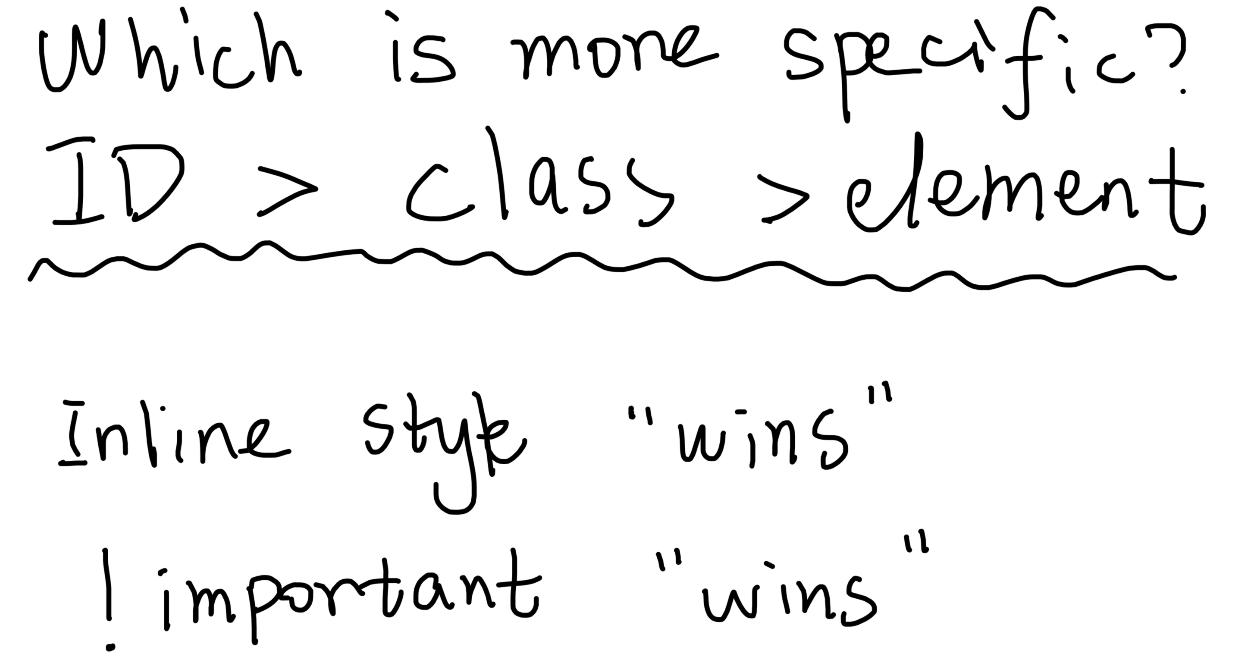 Which is more specific?
ID > class > element
Inline style "wins"
! important "wins"